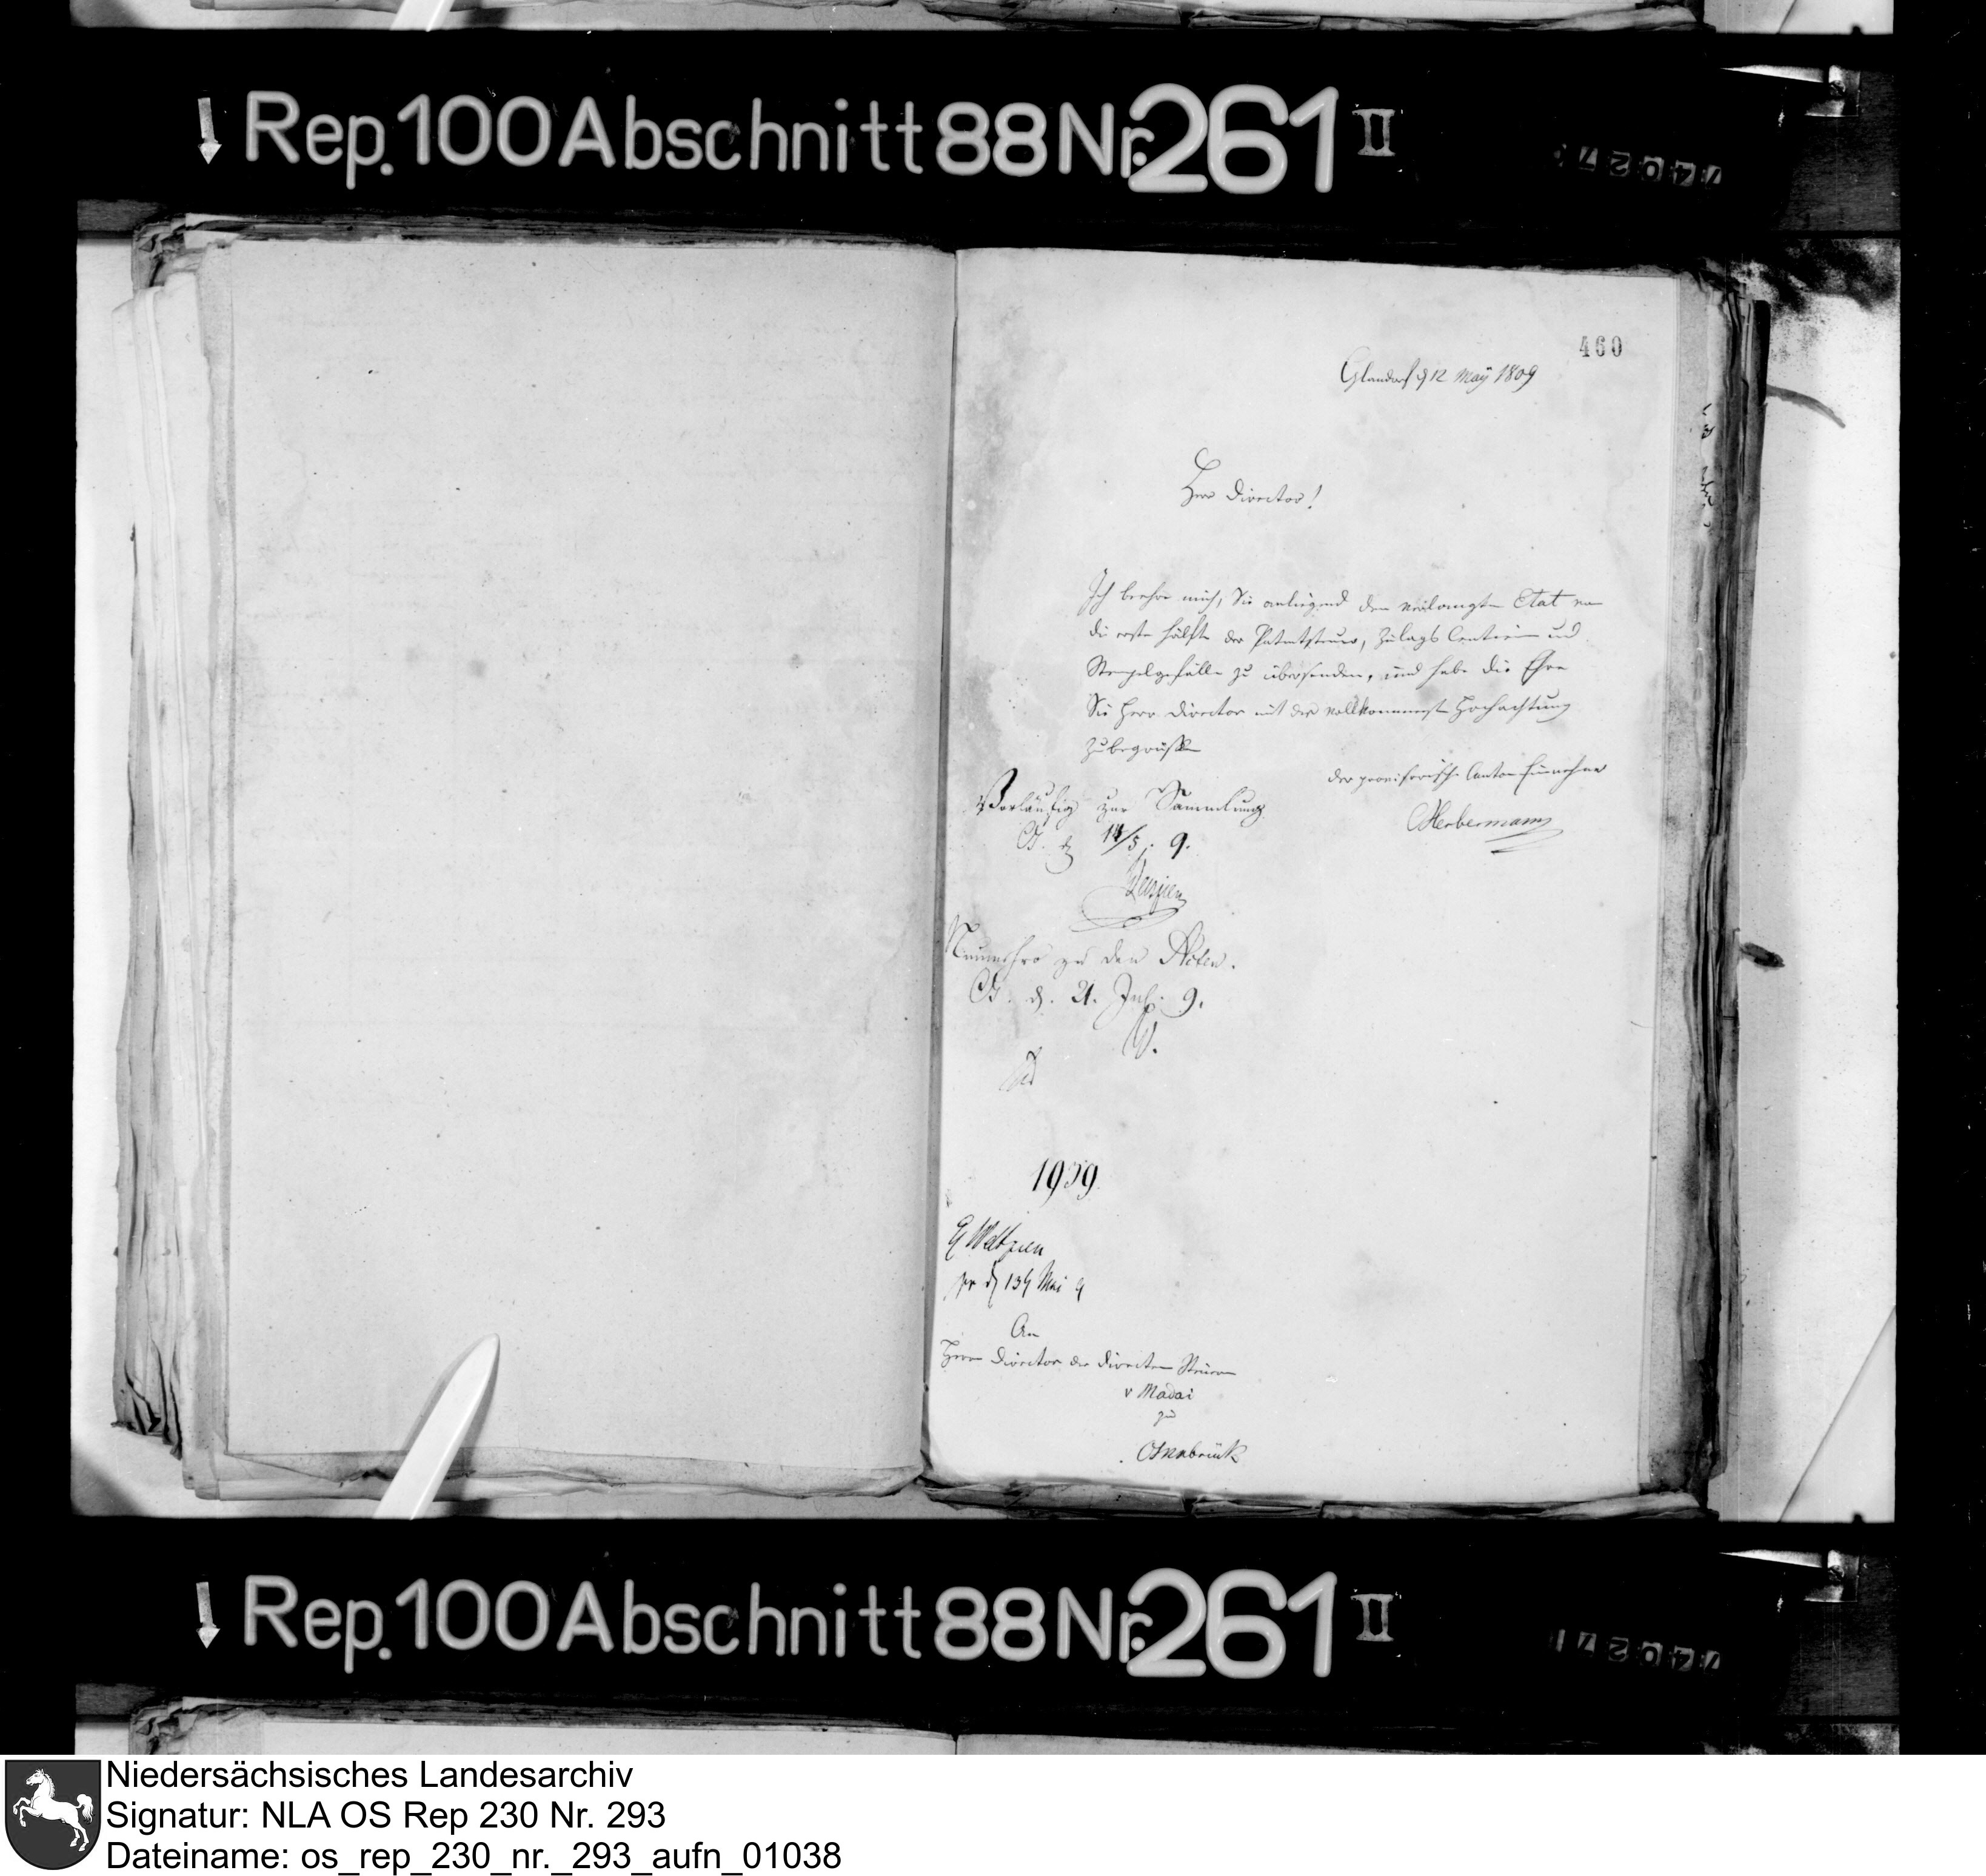 Rep. 100 Abschnitt 88 Nr. 261 II
460
Glandorf d 12 Maÿ 1809
Herr Director!
Ich beehre mich, Sie anliegend den verlangten Etat von
die erste Hälfte der Patentsteuer, Zulags Centimen und
Stempelgefälle zu übersenden, und habe die Ehre
Sie Herr Director mit der vollkommensten Hochachtung
zu begrüßen
der provisorische Canton Einnehmer
Herbermann
Vorläufig zur Sammlung
O. d. 14/5. 9.
Nunmehro zu den Acten.
O. d. 21. Jul. 9.
1939
Weltzien
pr d 13 Mai 9
An
Herrn Director der directen Steuern
v Madai
zu
Osnabrück
Rep. 100 Abschnitt 88 Nr. 261 II
Niedersächsisches Landesarchiv
Signatur: NLA OS Rep 230 Nr. 293
Dateiname: os_rep_230_nr._293_aufn_01038